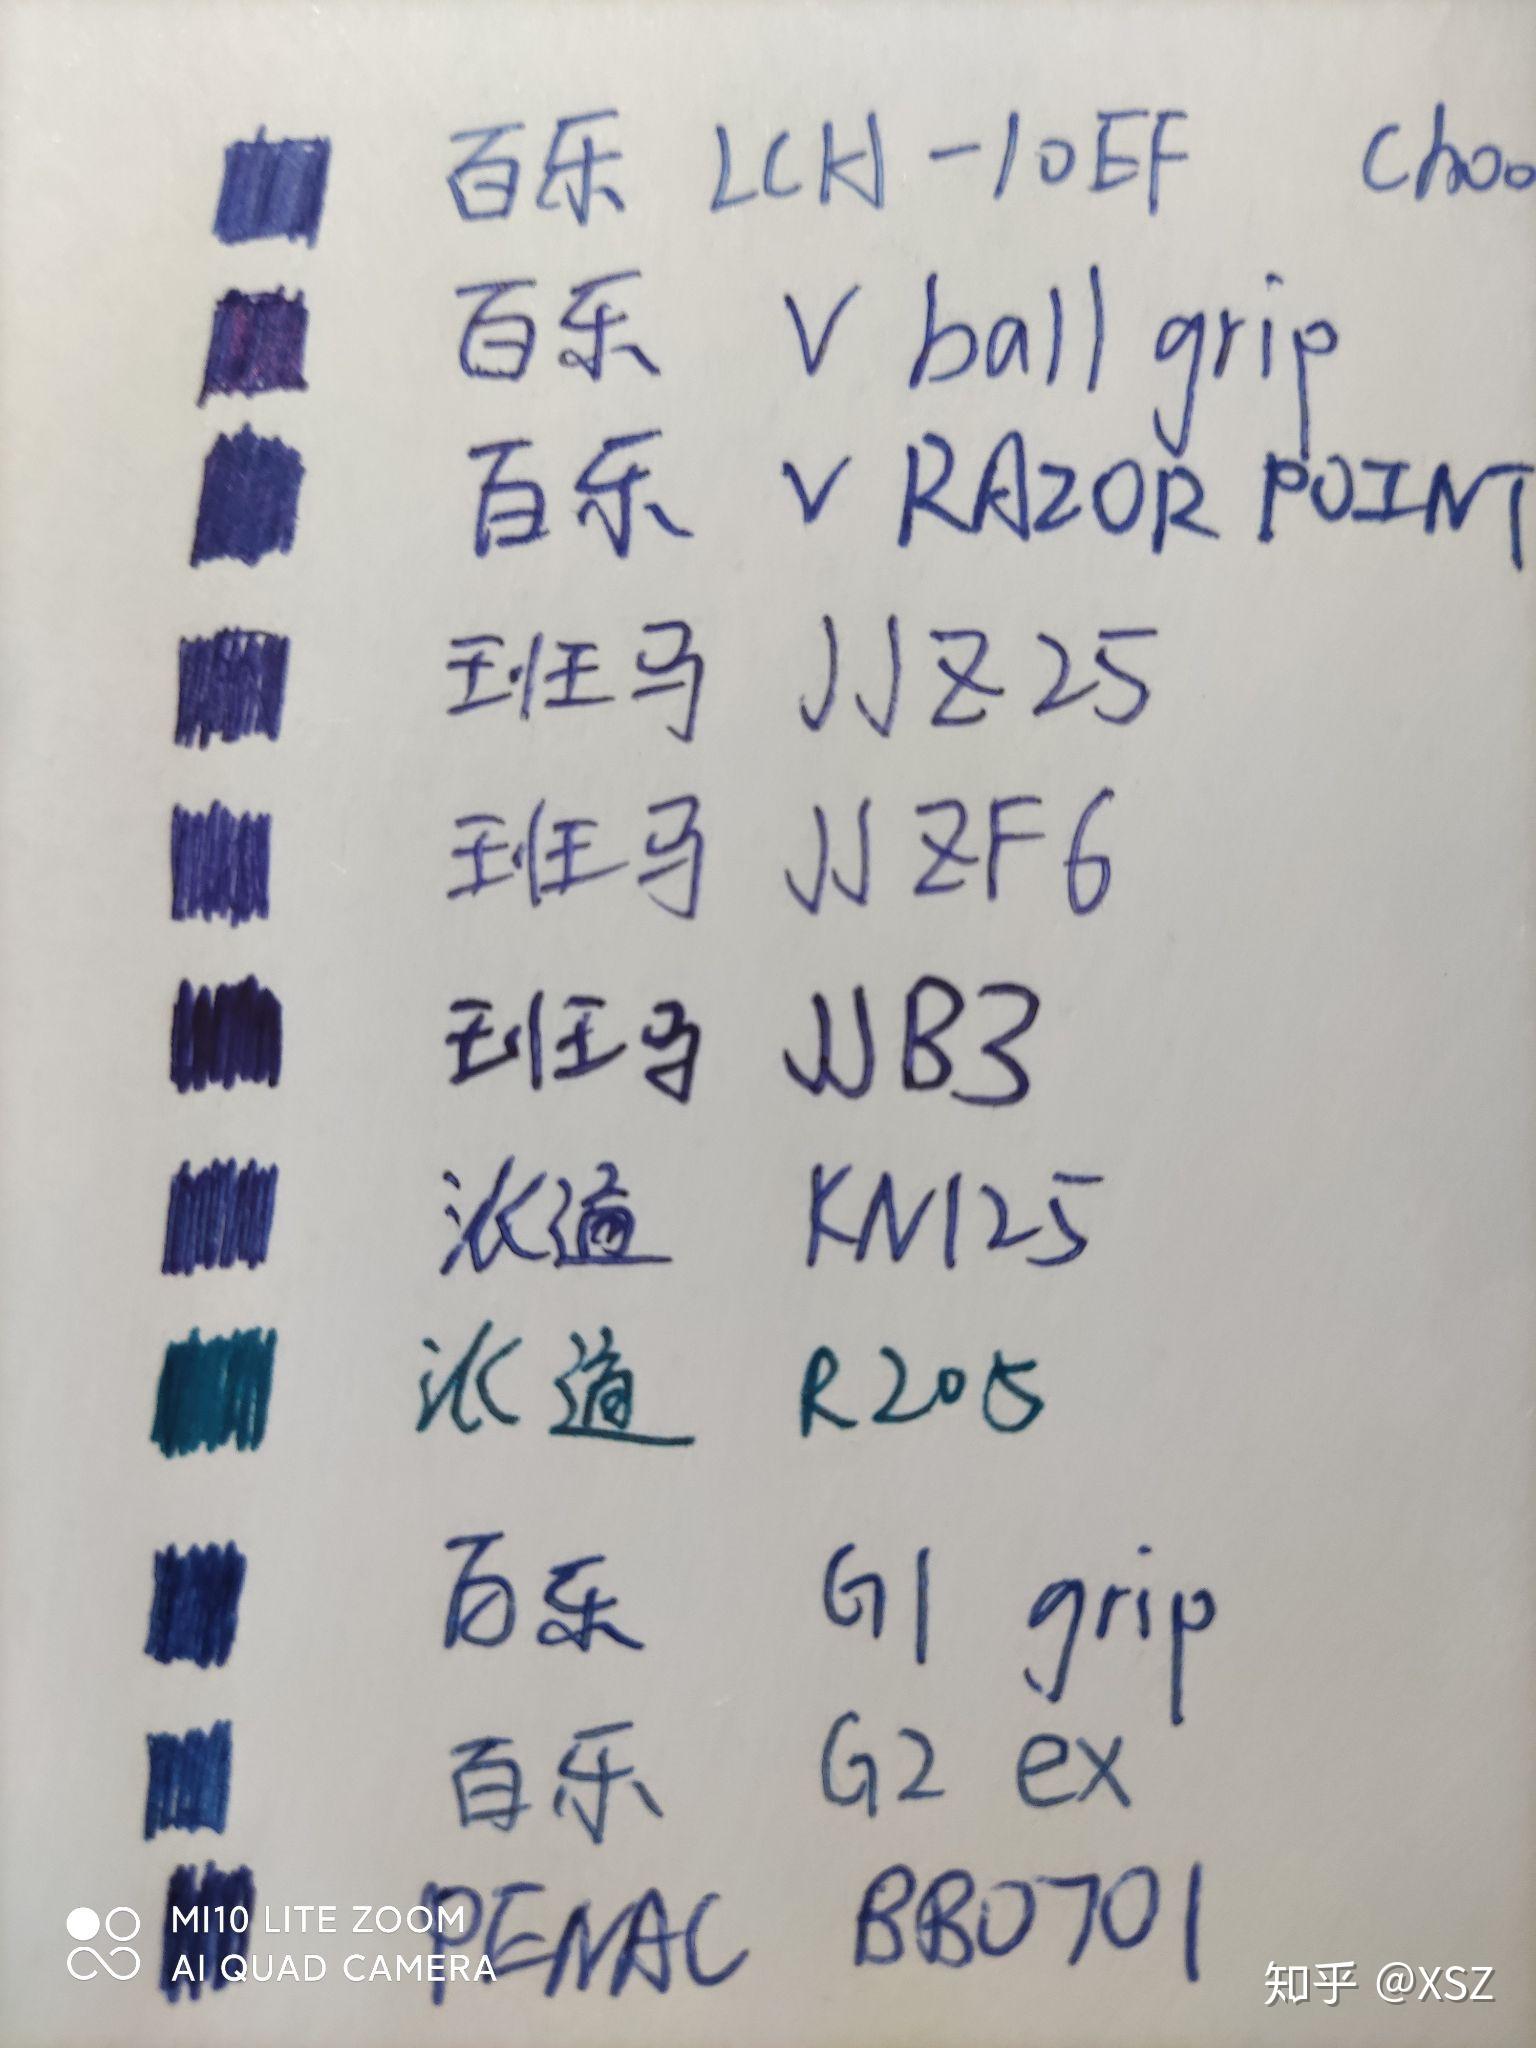 百乐 LCH-10EF Choo
百乐 V ball grip
百乐 V RAZOR POINT
斑马 JJZ25
斑马 JJZF6
斑马 JJB3
派通 KN125
派通 R205
百乐 G1 grip
百乐 G2 ex
PENAC BB0701
MI10 LITE ZOOM
AI QUAD CAMERA
知乎 @XSZ